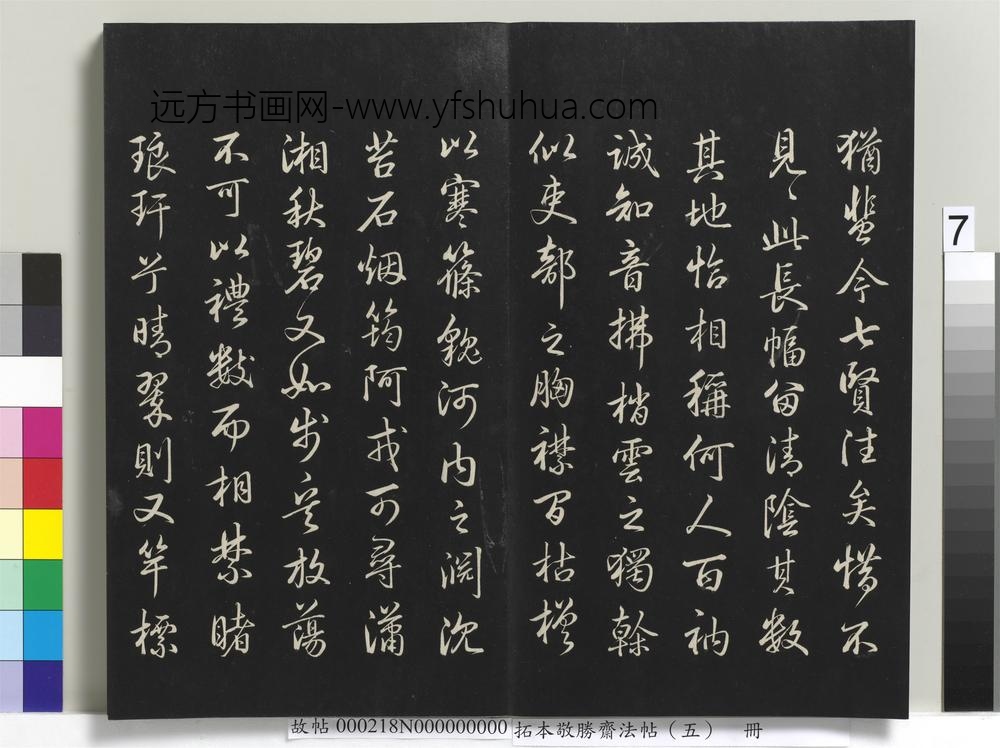 远方书画网-www.yfshuhua.com
猶藍今七賢往矣惜不
見見此長幅留清陰其數
其地恰相稱何人百衲
誠知音拂梢雲之獨幹
似吏部之胸襟百枯槎
以寒篠貌河內之淵沈
苔石烟筠阿戎可尋瀟
湘秋碧又如步兵放蕩
不可以禮數而相禁睹
琅玕兮晴翠則又竿標
7
故帖 000218N000000000 拓本敬勝齋法帖（五） 冊